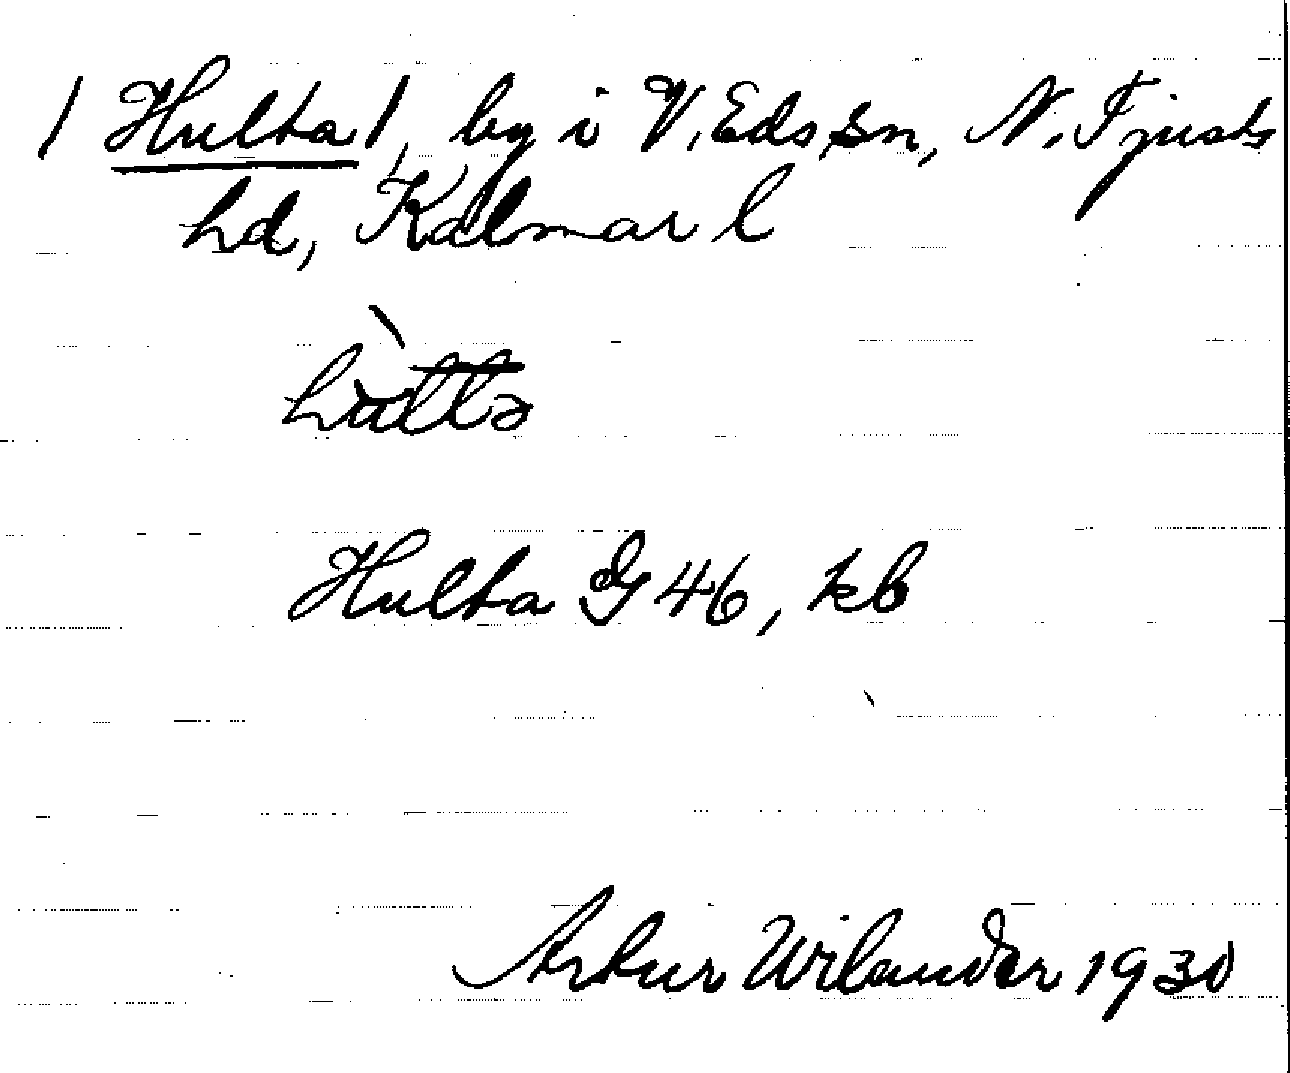 / Hulta /, by i V. Eds sn, N. Tjusts
hd, Kalmar l
Hulta G 46, kb
Arthur Wilander 1930